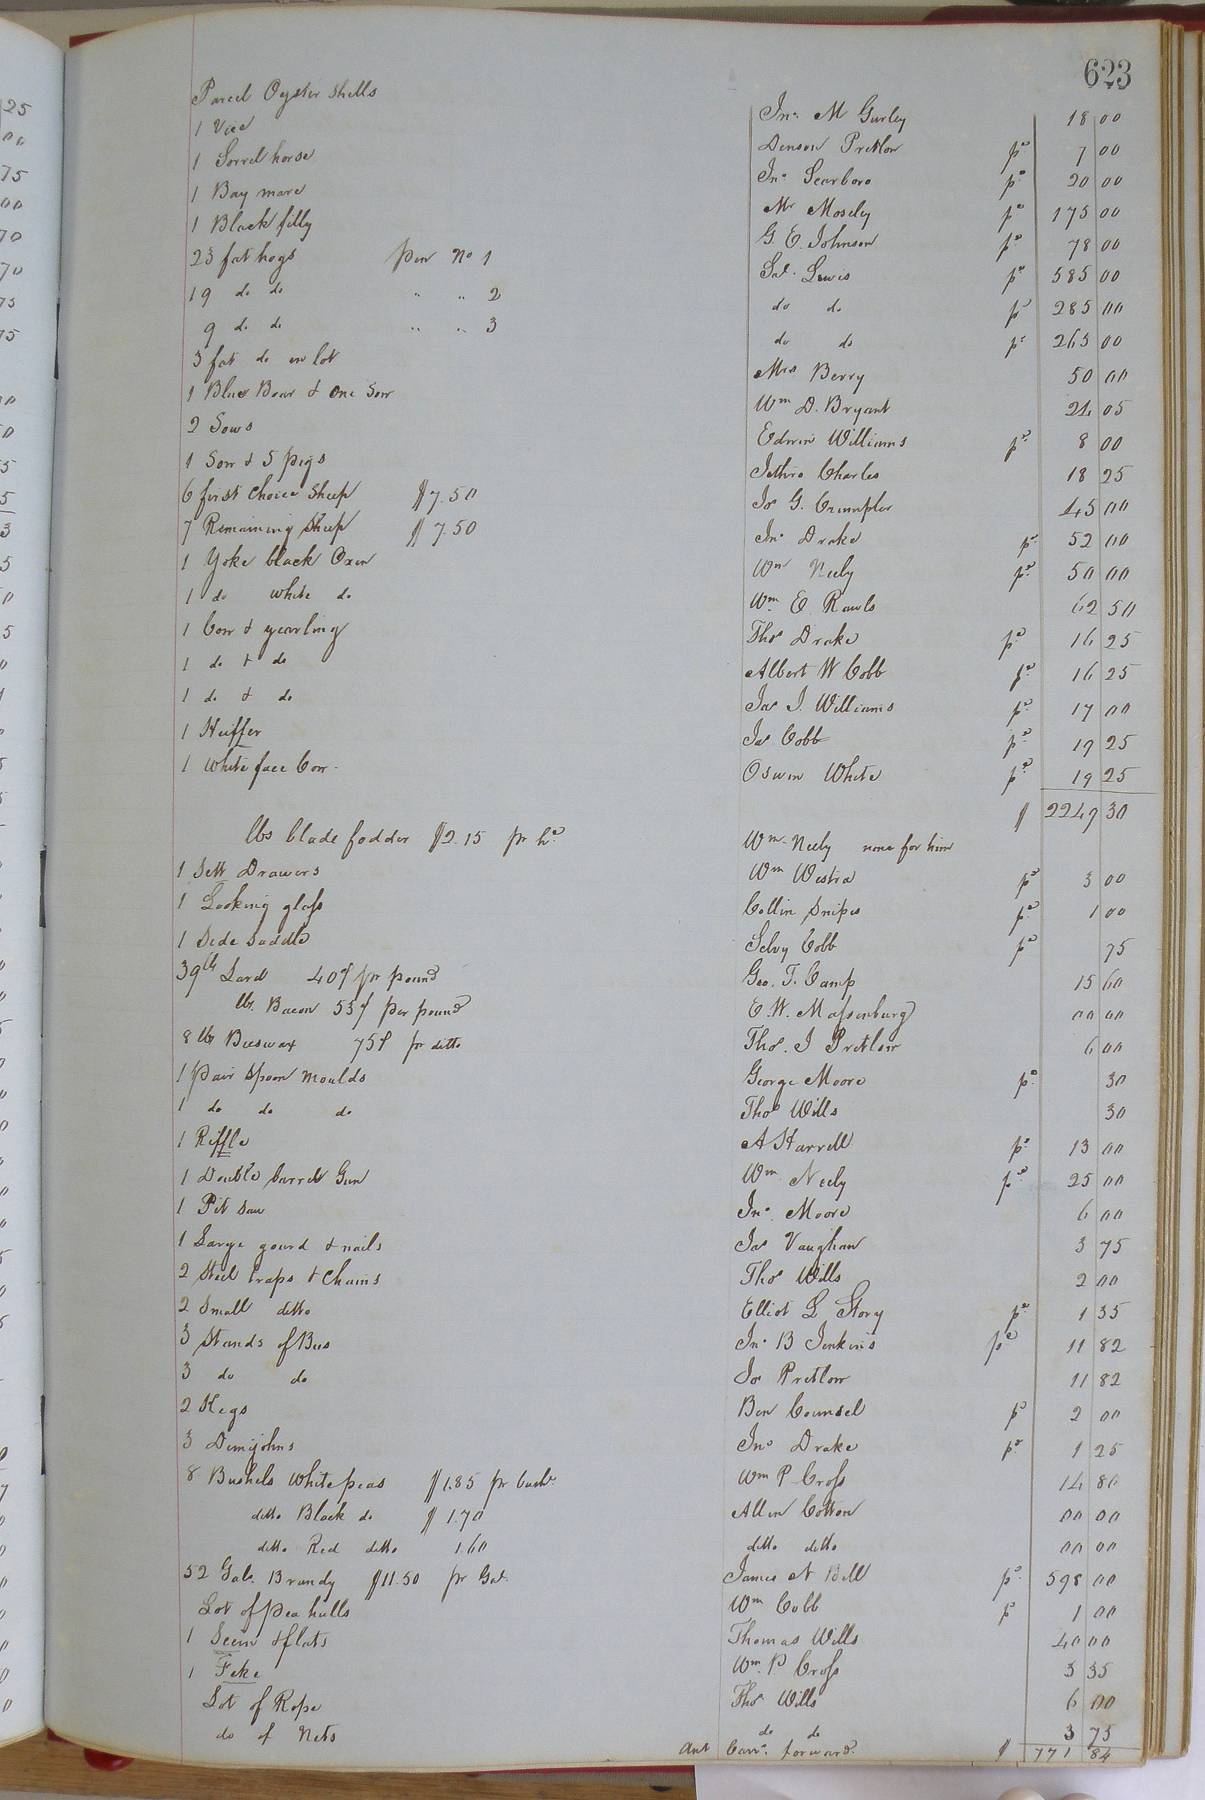 623
Parcel Oyster Shells Jno. M Gurley 18 00
1 Vice Denson Pretlow pd 7 00
1 Sorrel horse Jno. Scarboro pd 20 00
1 Bay mare Mr Mosely pd 175 00
1 Black filly G. E. Johnson pd 78 00
23 fat hogs pen No 1 Sol. Lewis pd 585 00
19 do do " " 2 do do pd 285 00
9 do do " " 3 do do pd 263 00
3 fat do in lot Mrs Berry 50 00
1 Blue Boar & One Sow Wm D. Bryant 24 05
2 Sows Edwin Williams pd 8 00
1 Sow & 5 pigs Jethro Charles 18 25
6 first Choice Sheep $7.50 Jos G. Crumpler 45 00
7 Remaining Sheep $7.50 Jno. Drake pd 52 00
1 Yoke black Oxen Wm Neely pd 50 00
1 do white do Wm E. Rawls 62 50
1 Cow & yearling Thos Drake pd 16 25
1 do & do Albert W Cobb pd 16 25
1 do & do Jas J. Williams pd 17 00
1 Heiffer Jas Cobb pd 19 25
1 White face Cow Oswin White pd 19 25
$ 2249 30
lbs blade fodder $2.15 pr hd Wm Neely none for him
1 Sett Drawers Wm Westra pd 3 00
1 Looking glass Collin Snipes pd 1 00
1 Side Saddle Selvy Cobb pd 75
39 lb Lard 40¢ pr pound Geo. T. Camp 15 60
lb. Bacon 55¢ per pound E. W. Massenburg 00 00
8 lbs Beeswax 75¢ pr ditto Thos. J Pretlow 6 00
1 pair Spoon moulds George Moore pd 30
1 do do do Thos Wills 30
1 Riffle A Harrell pd 13 00
1 Double barrel Gun Wm Neely pd 25 00
1 Pit saw Jno. Moore 6 00
1 Large gourd & nails Jas Vaughan 3 75
2 Steel traps & Chains Thos Wills 2 00
2 Small ditto Elliot L Story pd 1 35
3 Stands of Bees Jno. B Jenkins pd 11 82
3 do do Jos Pretlow 11 82
2 Kegs Ben Counsel pd 2 00
3 Demijohns Jno Drake pd 1 25
8 Bushels White peas $1.85 pr bush. Wm P Cross 14 80
ditto Black do $1.70 Allen Cotton 00 00
ditto Red ditto 1.60 ditto ditto 00 00
52 Gals. Brandy $11.50 pr Gal. James N Bell pd 598 00
Lot of pea hulls Wm Cobb pd 1 00
1 Seein & flats Thomas Wills 40 00
1 Feke Wm. P Cross 3 35
Lot of Rope Thos Wills 6 00
do of Nets do do 3 75
Amt Carrd. forward. $ 771 84